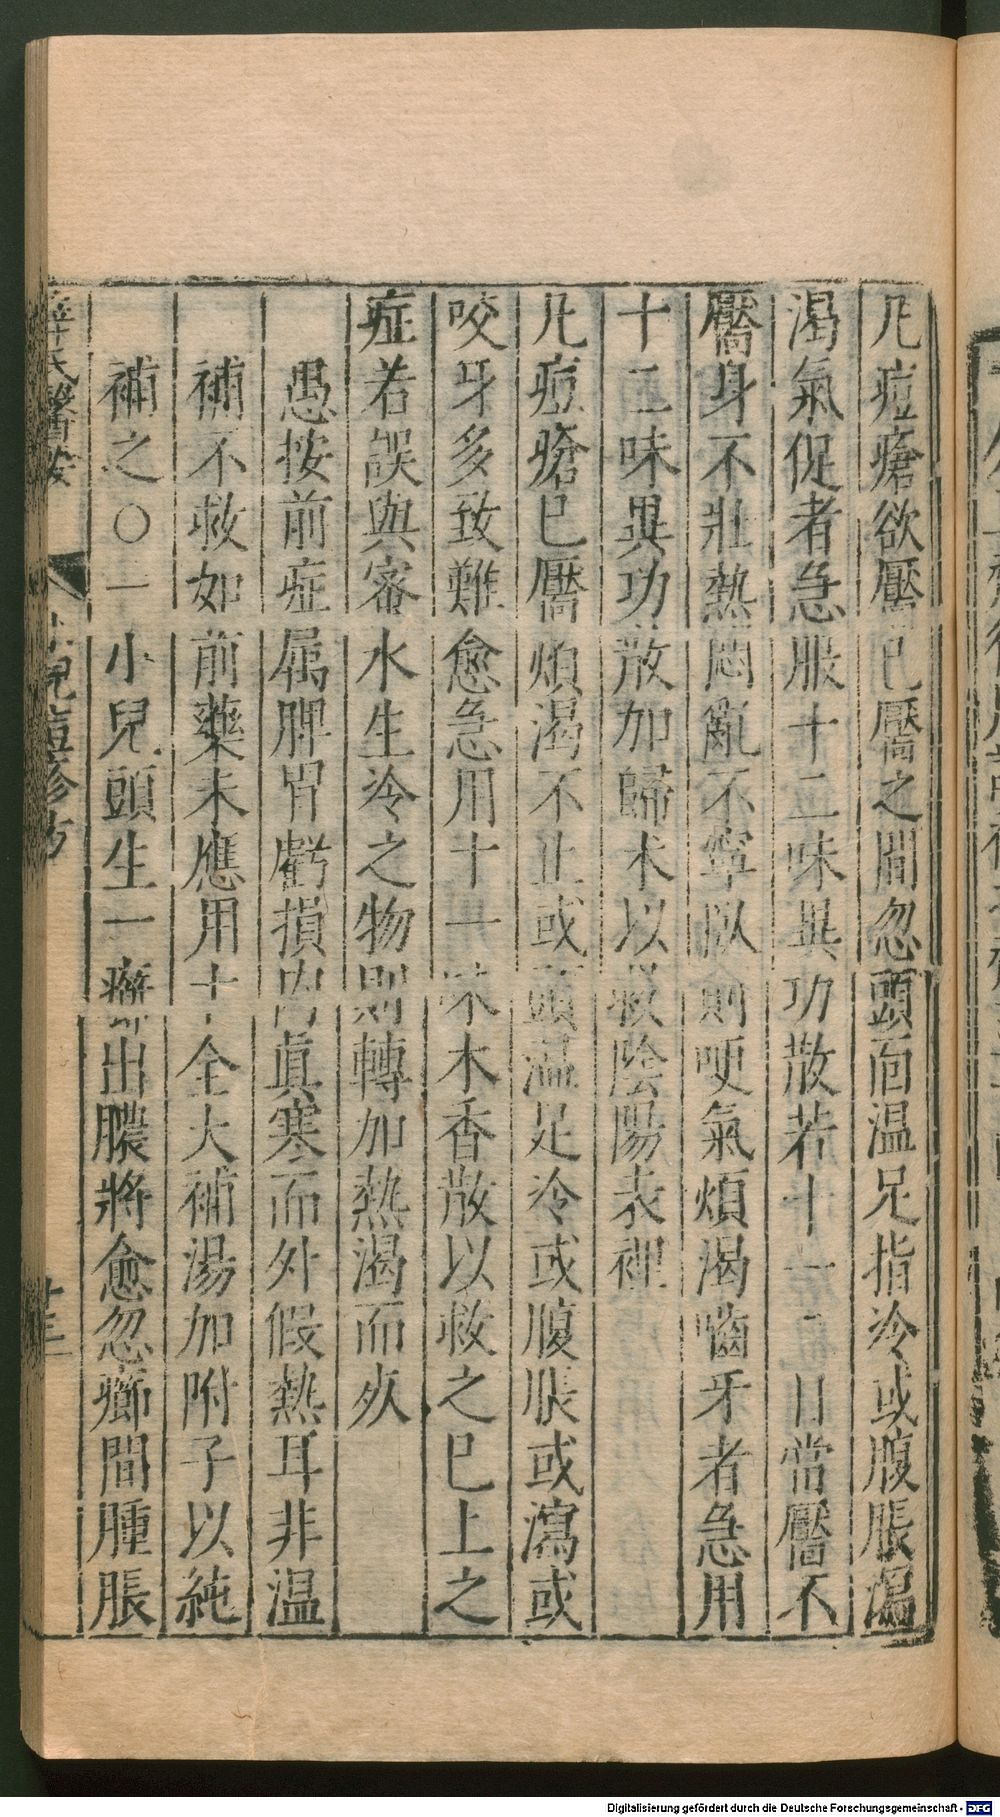 凡痘瘡欲靨已靨之間忽頭面温足指冷或腹脹瀉
渴氣促者急服十二味異功散若十一二日當靨不
靨身不壯熱悶亂不寧臥則哽氣煩渴嚙牙者急用
十二味異功散加歸木以救陰陽表裡
凡痘瘡已靨煩渴不止或頭温足冷或腹脹或瀉或
咬牙多致難愈急用十一味木香散以救之已上之
症若誤與審水生冷之物則轉加熱渴而死
愚按前症屬脾胃虧損内真寒而外假熱耳非温
補不救如前藥未應用十全大補湯加附子以純
補之○一小兒頭生一癤出膿將愈忽癤間腫脹
薛氏醫按
小兒痘疹方
廿三
Digitalisierung gefördert durch die Deutsche Forschungsgemeinschaft - DFG